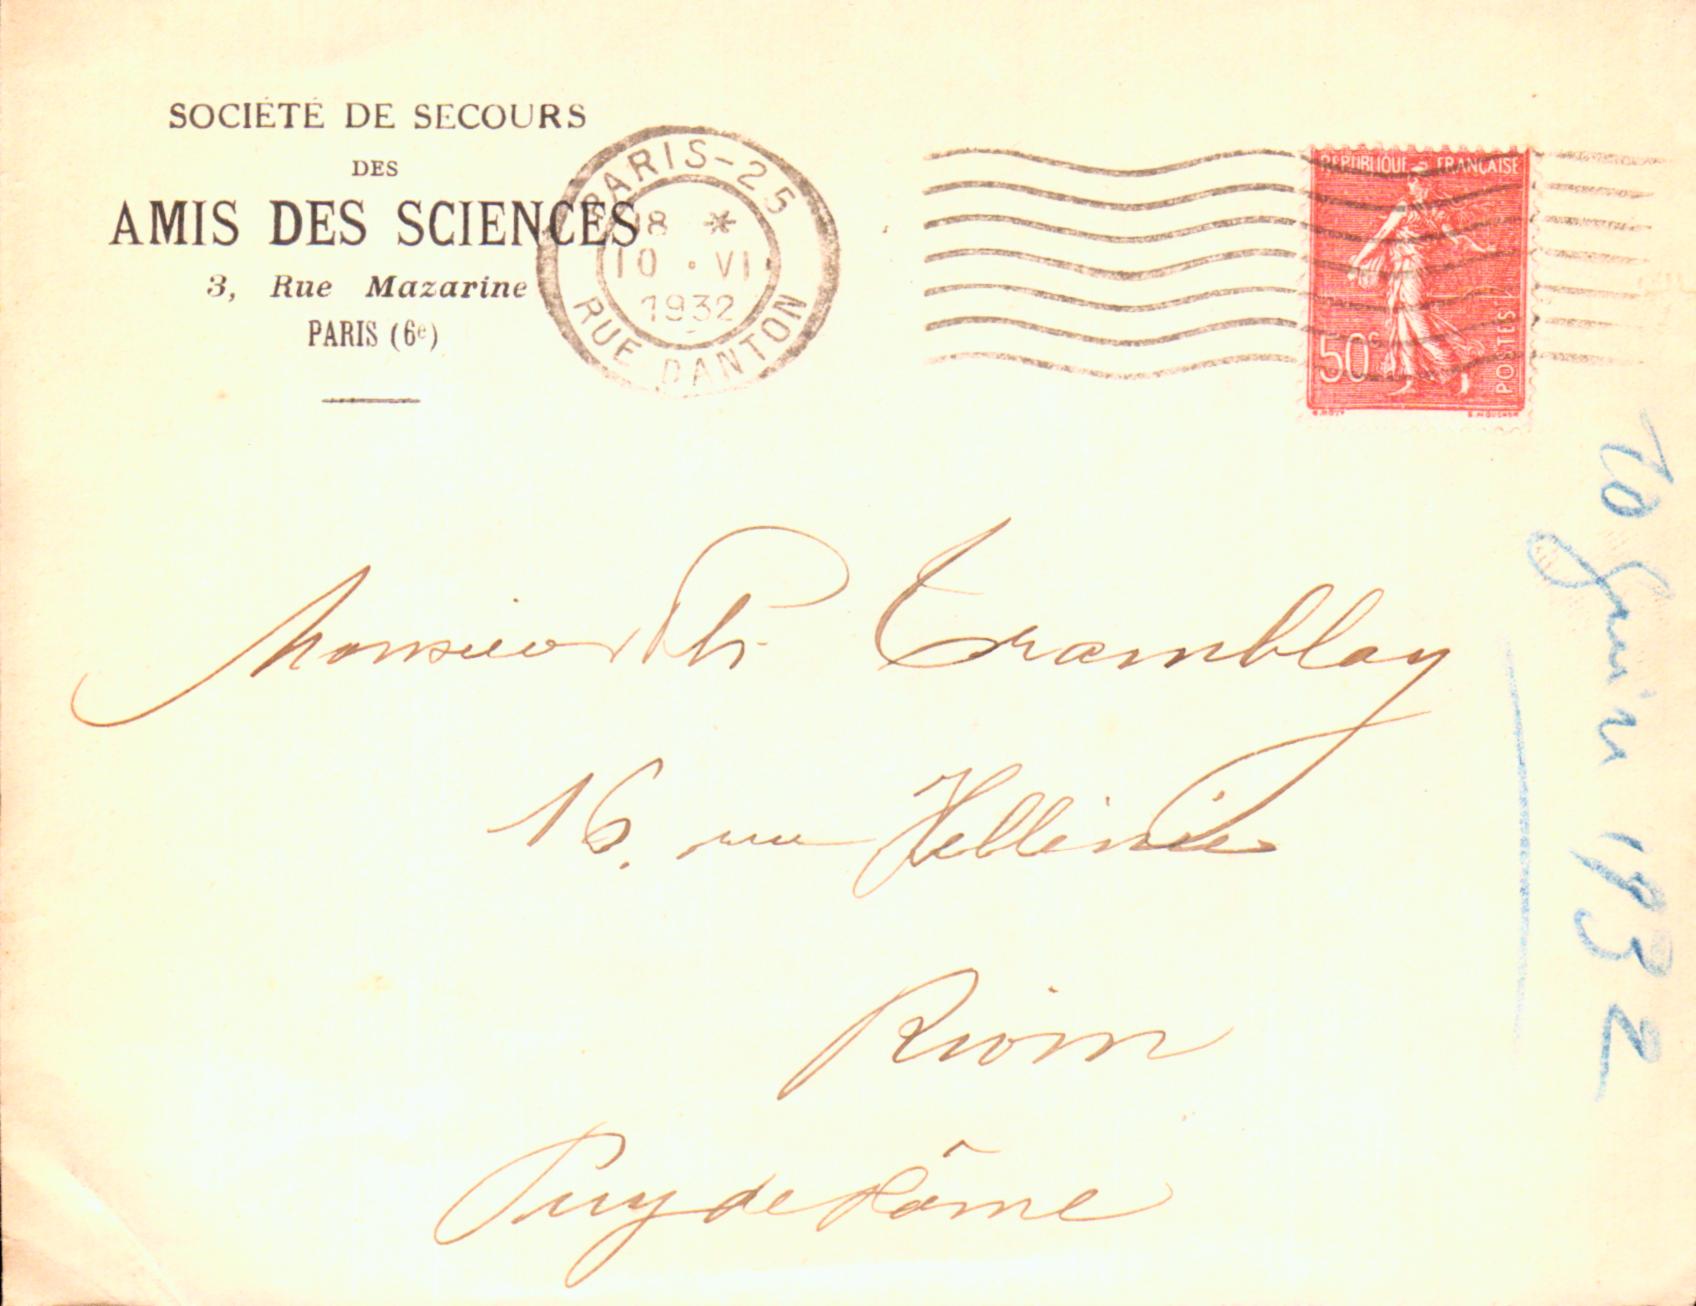 SOCIÉTÉ DE SECOURS
DES
AMIS DES SCIENCES
3, Rue Mazarine
PARIS (6e)
PARIS-25
18 *
10 · VI
1932
RUE DANTON
REPUBLIQUE FRANÇAISE
50c
POSTES
Monsieur Ph Tramblay
16, rue
Riom
Puy de Dôme
10 Juin 1932